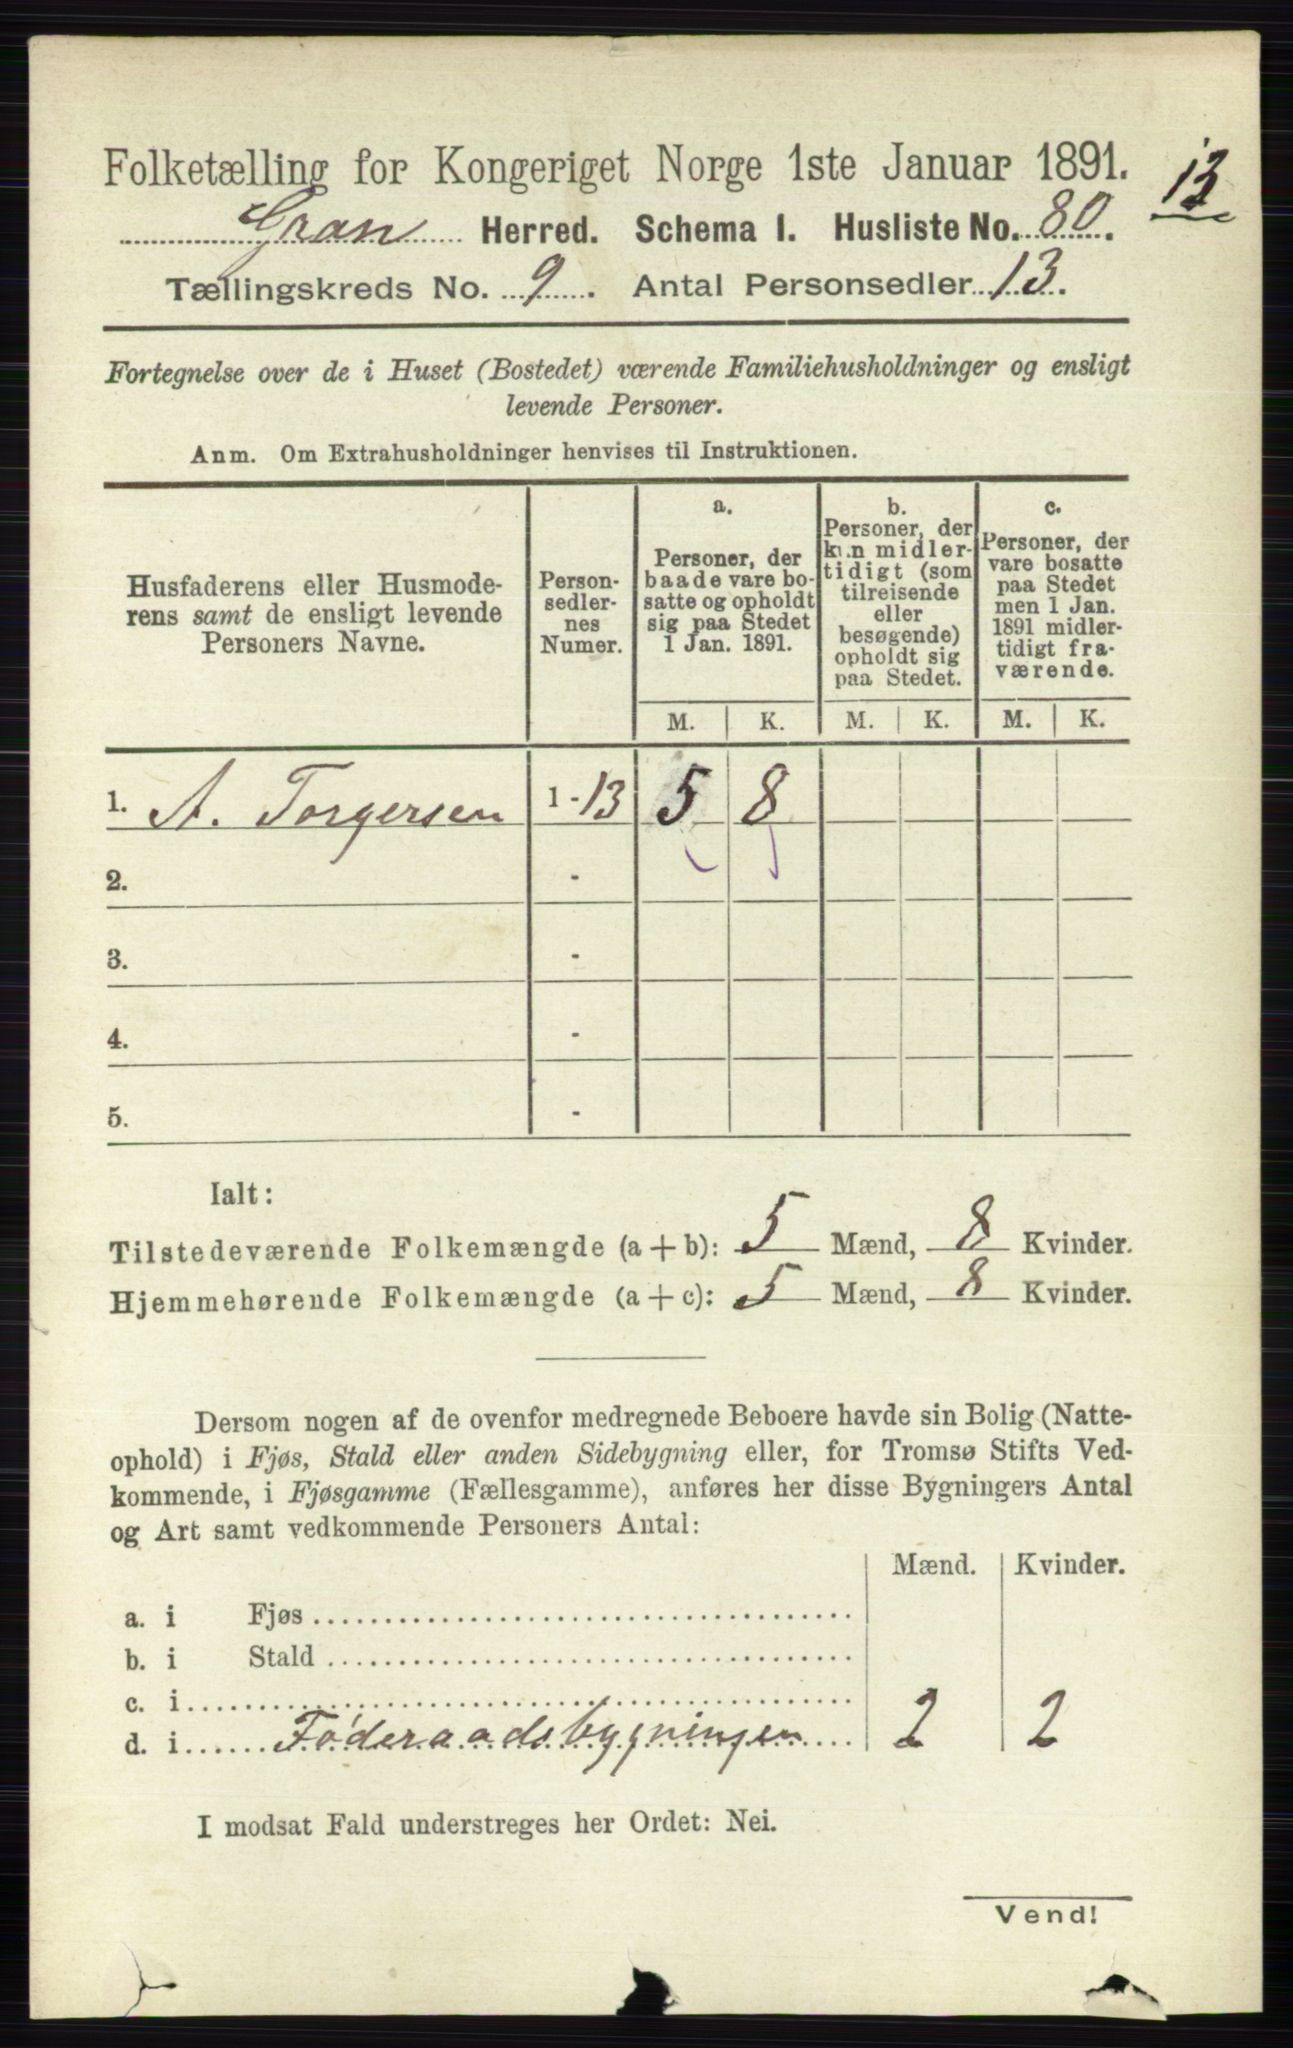 Folketælling for Kongeriget Norge 1ste Januar 1891.
13
Gran Herred. Schema I. Husliste No. 80.
Tællingskreds No. 9. Antal Personsedler 13.
Fortegnelse over de i Huset (Bostedet) værende Familiehusholdninger og ensligt
levende Personer.
Anm. Om Extrahusholdninger henvises til Instruktionen.
Husfaderens eller Husmode-
rens samt de ensligt levende
Personers Navne.
Person-
sedler-
nes
Numer.
a.
Personer, der
baade vare bo-
satte og opholdt
sig paa Stedet
1 Jan. 1891.
b.
Personer, der
kun midler-
tidigt (som
tilreisende
eller
besøgende)
opholdt sig
paa Stedet.
c.
Personer, der
vare bosatte
paa Stedet
men 1 Jan.
1891 midler-
tidigt fra-
værende.
M. K. M. K. M. K.
1. A. Torgersen 1-13 5 8
2. -
3. -
4. -
5. -
Ialt:
Tilstedeværende Folkemængde (a+b): 5 Mænd, 8 Kvinder.
Hjemmehørende Folkemængde (a+c): 5 Mænd, 8 Kvinder.
Dersom nogen af de ovenfor medregnede Beboere havde sin Bolig (Natte-
ophold) i Fjøs, Stald eller anden Sidebygning eller, for Tromsø Stifts Ved-
kommende, i Fjøsgamme (Fællesgamme), anføres her disse Bygningers Antal
og Art samt vedkommende Personers Antal:
Mænd. Kvinder.
a. i Fjøs
b. i Stald
c. i
d. i Føderaadsbygningen 2 2
I modsat Fald understreges her Ordet: Nei.
Vend!